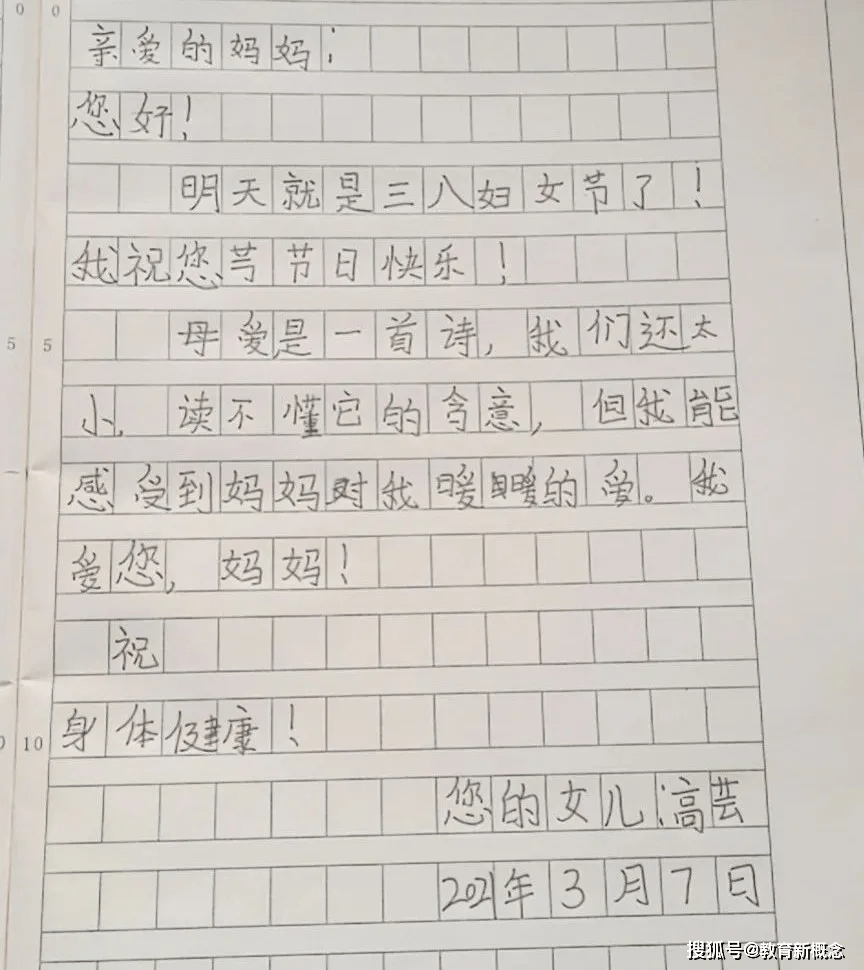 0 0
亲爱的妈妈:
您好!
明天就是三八妇女节了!
我祝您节日快乐!
5 5
母爱是一首诗,我们还太
小,读不懂它的含意,但我能
感受到妈妈对我暖暖的爱。我
爱您,妈妈!
祝
0 10
身体健康!
您的女儿:高芸
2021年3月7日
搜狐号@教育新概念